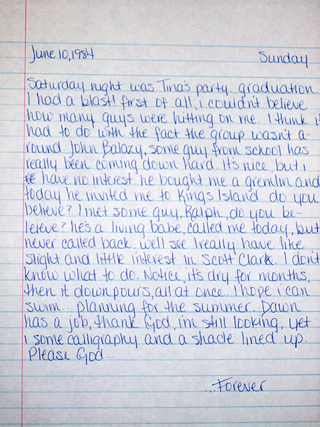 June 10, 1984 Sunday
Saturday night was Tina's party. graduation
I had a blast! first of all, i couldn't believe
how many guys were hitting on me I think it
had to do with the fact the group wasn't a-
round. John Balazy, some guy from school has
really been coming down hard. it's nice, but i
have no interest. he bought me a gremlin and
today he invited me to Kings Island. do you
believe? I met some guy, Ralph, do you be-
leive? he's a living babe, called me today, but
never called back. we'll see. I really have like
slight and little interest in Scott Clark. I don't
know what to do. Notice, it's dry for months,
then it downpours, all at once. I hope i can
swim... planning for the summer. Dawn
has a job, thank God, i'm still looking, yet
i some calligraphy and a shade lined up.
Please God...
...Forever